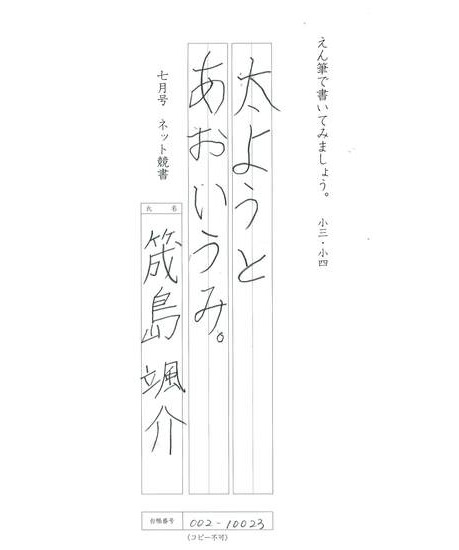 えん筆で書いてみましょう。 小三・小四
太ようと
あおいうみ。
七月号 ネット競書
氏名
筬島 颯介
台帳番号 002-10023
(コピー不可)